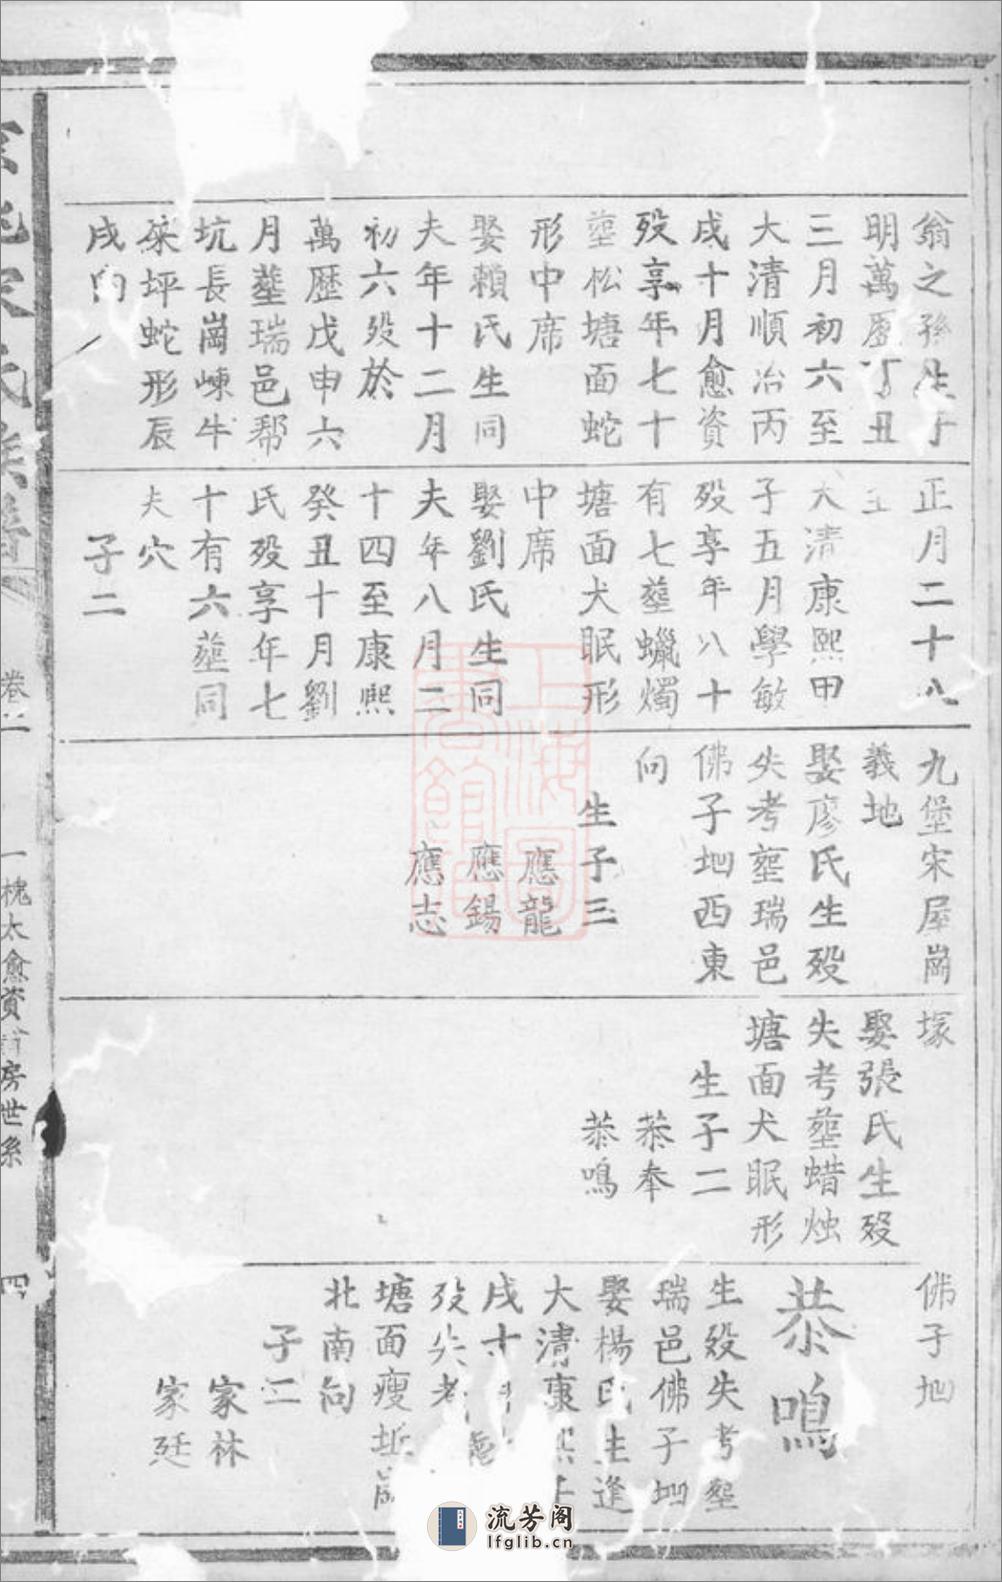 翁之孫生于
明萬曆丁丑
三月初六至
大清順治丙
戌十月愈資
歿享年七十
塟松塘面蛇
形中席
娶賴氏生同
夫年十二月
初六歿於
萬歷戊申六
月塟瑞邑帮
坑長崗崠牛
坪蛇形辰
戌向
正月二十八
大清康熙甲
子五月學敏
歿享年八十
有七塟蠟燭
塘面犬眠形
中席
娶劉氏生同
夫年八月二
十四至康熙
癸丑十月劉
氏歿享年七
十有六塟同
夫穴
子二
九堡宋屋崗
義地
娶廖氏生歿
失考塟瑞邑
佛子坳西東
向
生子三
應龍
應錫
應志
塚
娶張氏生歿
失考塟蜡烛
塘面犬眠形
生子二
恭奉
恭鳴
佛子坳
恭鳴
生歿失考塟
瑞邑佛子坳
娶楊氏生逢
大清康熙
戌十
歿失考
塘面瘦坵崗
北南向
子二
家林
家廷
氏族譜
卷
一槐太愈資房世系
四
上海圖書館藏
流芳阁
lfglib.cn